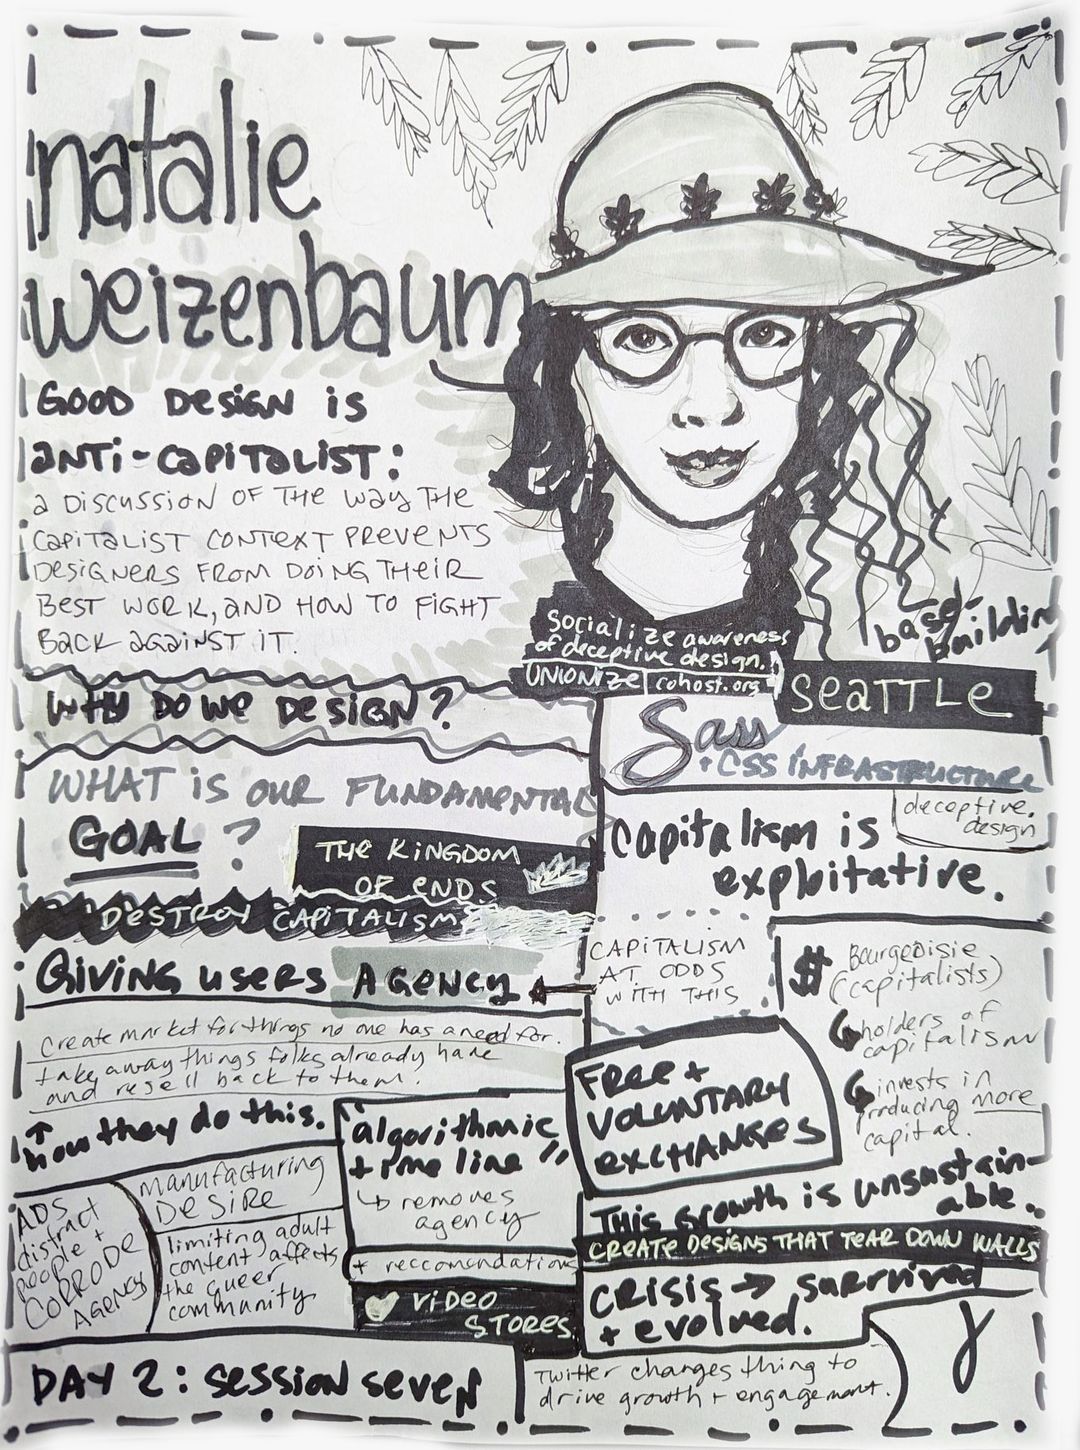 natalie
weizenbaum
GOOD DESIGN is
anti-capitalist:
a DISCUSSION OF THE way THE
CaPiTaLIST CONTEXT PREVENTS
DESIGNERS FROM DOING THEIR
BEST WORK, and HOW TO FIGHT
BACK against IT.
WHY DO WE DESIGN?
WHAT is OUR FUNDAMENTAL
GOAL?
THE KINGDOM
OF ENDS
DESTROY CAPITALISM
GIVING users AGENCY
Create market for things no one has a need for.
take away things folks already have
and resell back to them.
how they do this.
ADS
distract
people +
CORRODE
AGENCY
manufacturing
DESIRE
limiting adult
content affects
the queer
community
"algorithmic
time line"
removes
agency
+ reccomendations
VIDEO
STORES
DAY 2: session seven
Socialize awareness
of deceptive design.
UNIONIZE
cohost.org
base-
building
SeaTTLe
Sass
+ CSS iNFRASTRUCTURE
deceptive
design
capitalism is
exploitative.
CAPITALISM
AT ODDS
WITH THIS
$ Bourgeoisie
(capitalists)
holders of
capitalism
invests in
producing more
capital.
FREE +
VOLUNTARY
EXCHANGES
THIS growth is unsustain-
able..
CREATE DESIGNS THAT TEAR DOWN WALLS
CRISIS → survived
+ evolved.
Twitter changes thing to
drive growth + engagement.